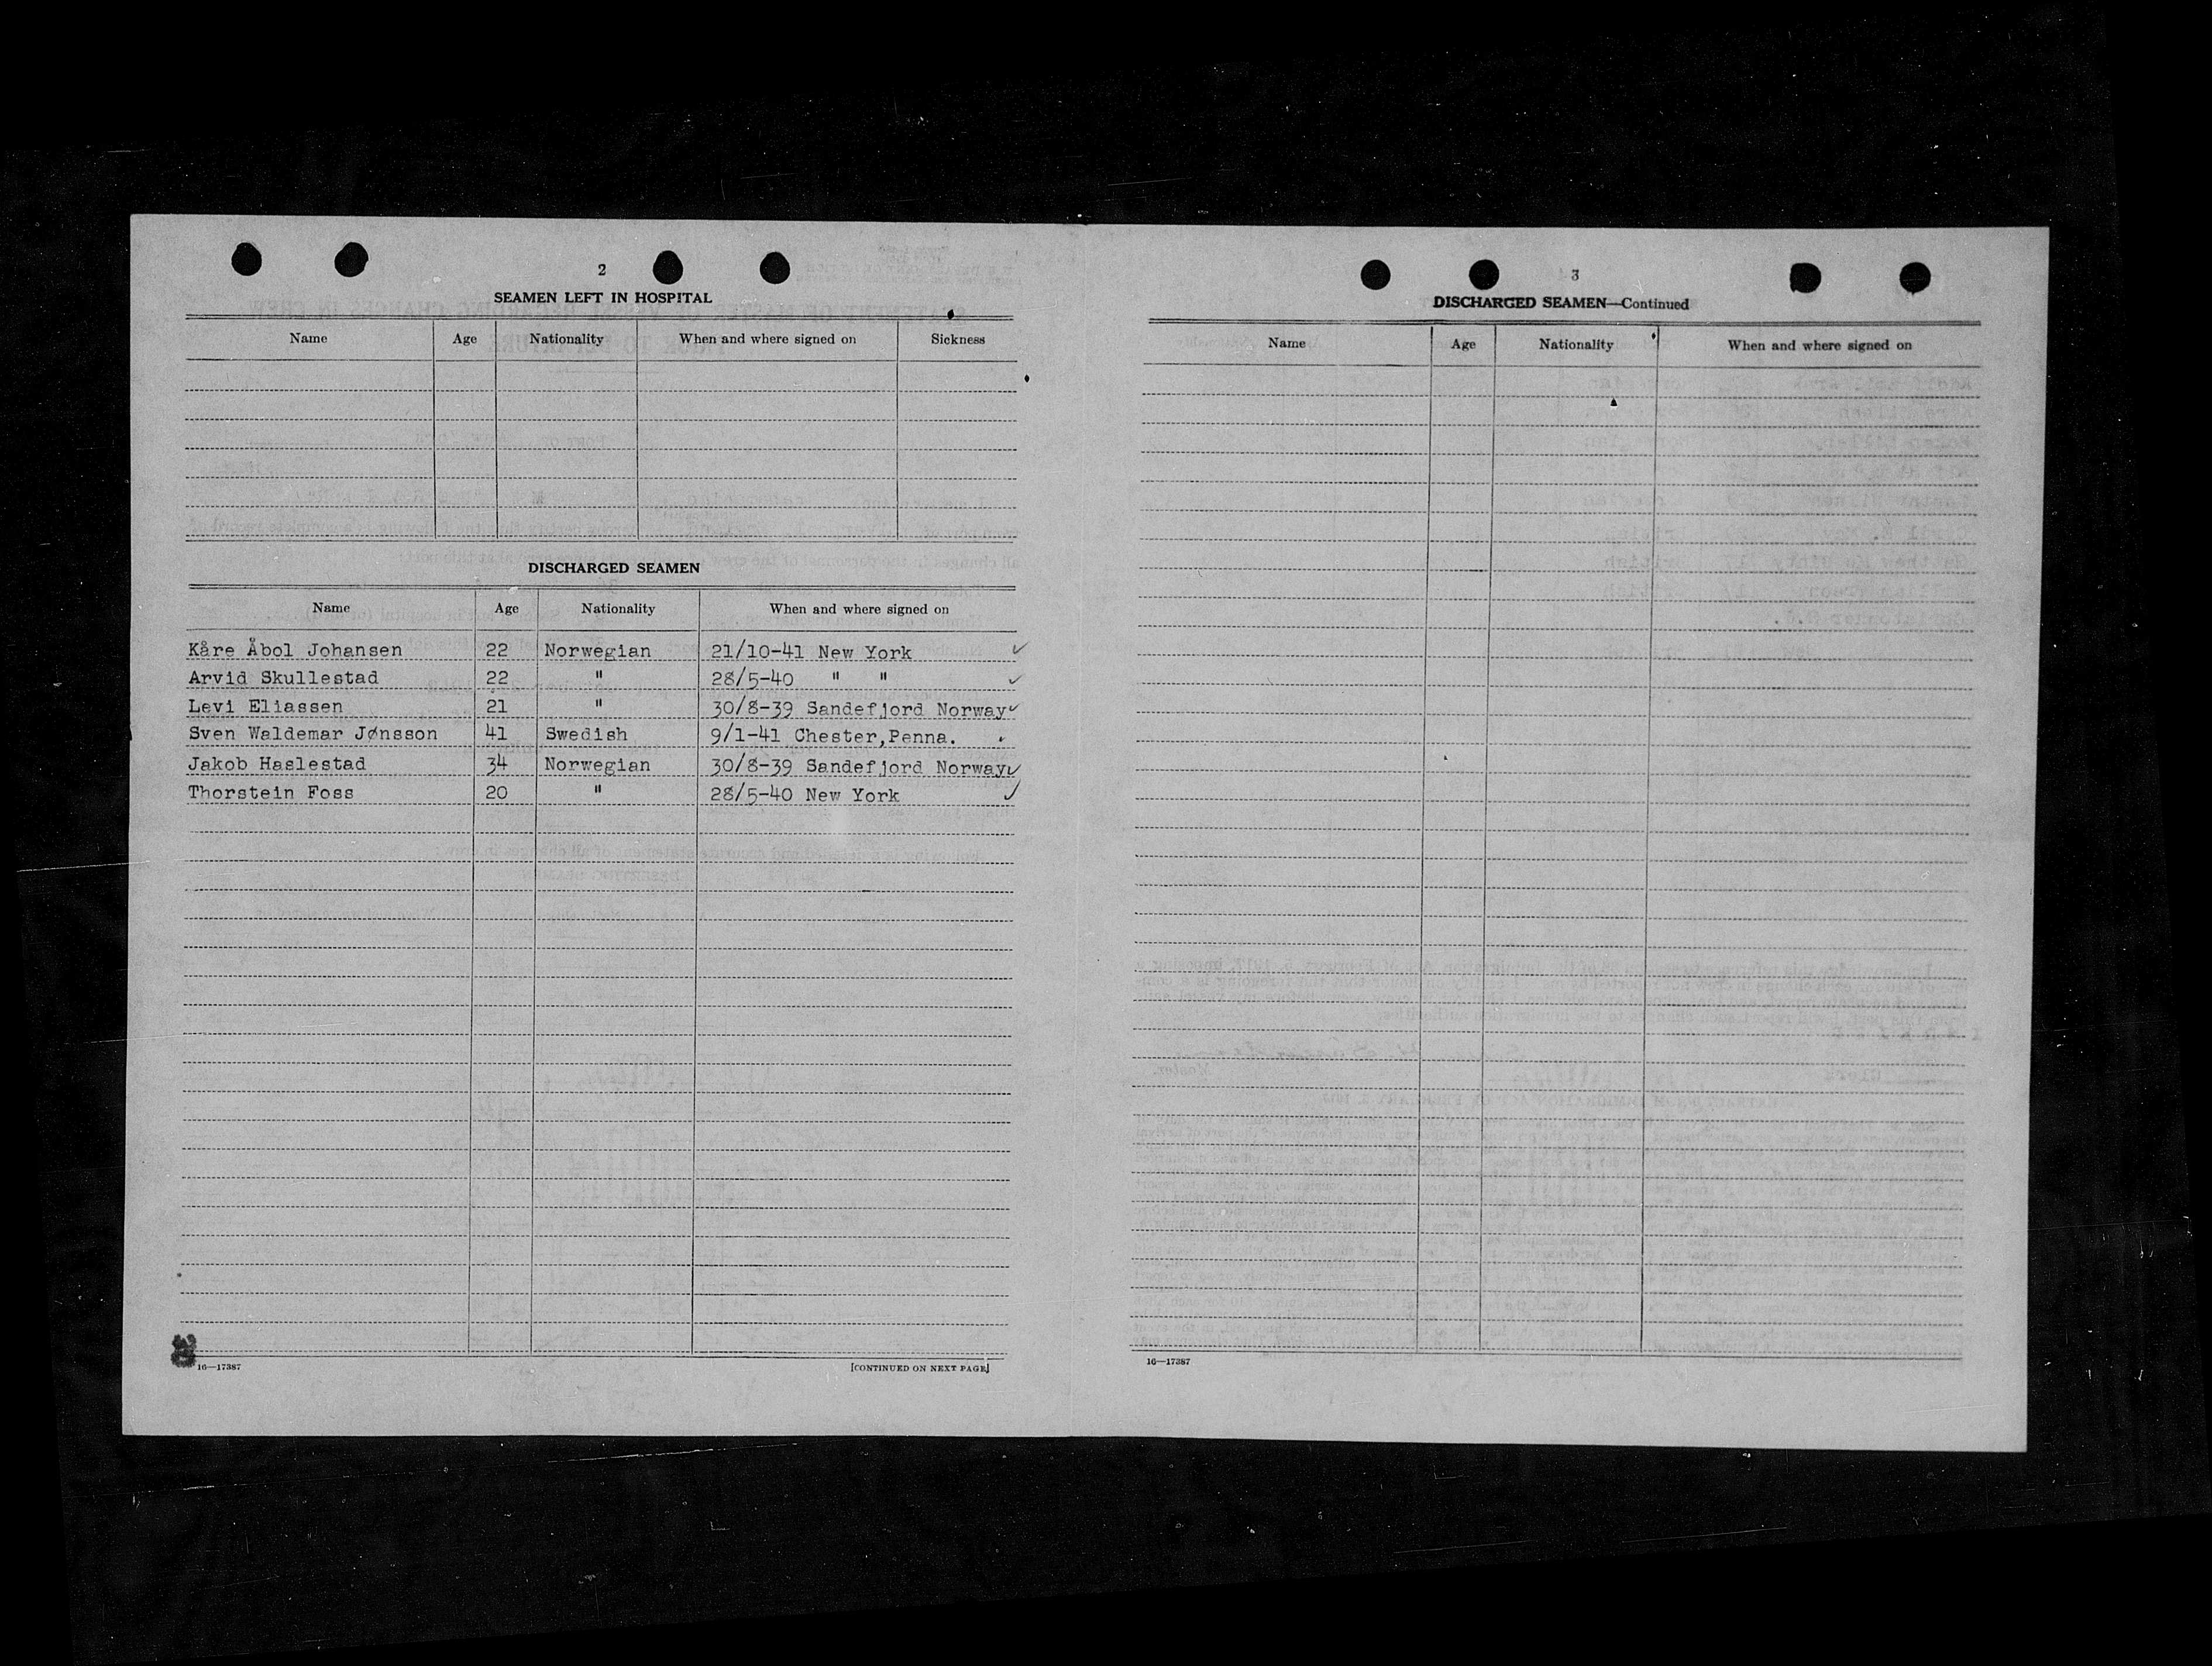 2
SEAMEN LEFT IN HOSPITAL
Name Age Nationality When and where signed on Sickness
DISCHARGED SEAMEN
Name Age Nationality When and where signed on
Kåre Åbol Johansen 22 Norwegian 21/10-41 New York ✓
Arvid Skullestad 22 " 28/5-40 " " ✓
Levi Eliassen 21 " 30/8-39 Sandefjord Norway ✓
Sven Waldemar Jønsson 41 Swedish 9/1-41 Chester,Penna. ✓
Jakob Haslestad 34 Norwegian 30/8-39 Sandefjord Norway ✓
Thorstein Foss 20 " 28/5-40 New York ✓
16—17387 [CONTINUED ON NEXT PAGE]
3
DISCHARGED SEAMEN—Continued
Name Age Nationality When and where signed on
16—17387